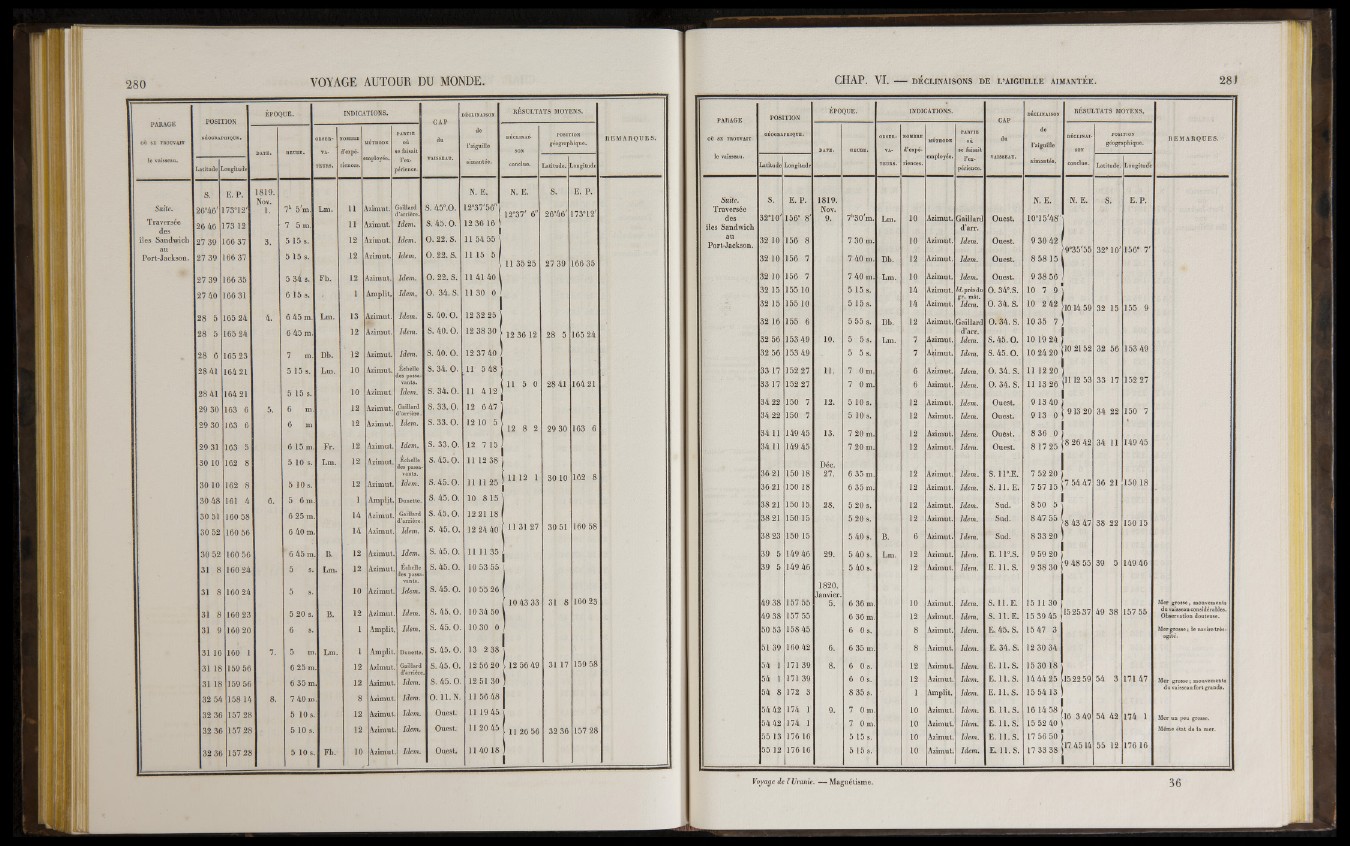 280 VOYAGE AUTOUR DU MONDE.
PARAGE OÙ SE TROUVAIT le vaisseau. | POSITION GÉOGRAPHIQUE. Latitude Longitude | ÉPOQUE. DATE. HEURE. | INDICATIONS. OBSERVATEURS. NOMBRE d'expériences. MÉTHODE employée. PARTIE où se faisait l'expérience. | CAP du VAISSEAU. | DÉCLINAISON de l'aiguille aimantée. | RÉSULTATS MOYENS. DÉCLINAISON conclue. POSITION géographique. Latitude. Longitude | REMARQUES.
S. E. P. 1819. N. E. N. E. S. E. P.
Suite. Traversée des îles Sandwich au Port-Jackson.
26°46' 173°12' Nov. 1. 7h 5'm. Lm. 11 Azimut. Gaillard d'arrière. S. 45°.O. 12°37'56" 12°37' 6" 26°46' 173°12'
26 46 173 12 7 5 m. 11 Azimut. Idem. S. 45. O. 12 36 16
27 39 166 37 3. 5 15 s. 12 Azimut. Idem. O. 22. S. 11 54 55
27 39 166 37 5 15 s. 12 Azimut. Idem. O. 22. S. 11 15 5 11 35 25 27 39 166 35
27 39 166 35 5 34 s. Fb. 12 Azimut. Idem. O. 22. S. 11 41 40
27 40 166 31 6 15 s. 1 Amplit. Idem. O. 34. S. 11 30 0
28 5 165 24 4. 6 45 m. Lm. 13 Azimut. Idem. S. 40. O. 12 32 25
28 5 165 24 6 45 m. 12 Azimut. Idem. S. 40. O. 12 38 30 12 36 12 28 5 165 24
28 6 165 23 7 m. Db. 12 Azimut. Idem. S. 40. O. 12 37 40
28 41 164 21 5 15 s. Lm. 10 Azimut. Échelle des passavents. S. 34. O. 11 5 48 11 5 0 28 41 164 21
28 41 164 21 5 15 s. 10 Azimut. Idem. S. 34. O. 11 4 12
29 30 163 6 5. 6 m 12 Azimut. Gaillard d'arrière. S. 33. O. 12 6 47
29 30 163 6 6 m 12 Azimut. Idem. S. 33. O. 12 10 5 12 8 2 29 30 163 6
29 31 163 5 6 15 m Fr. 12 Azimut. Idem. S. 33. O. 12 7 15
30 10 162 8 5 10 s. Lm. 12 Azimut. Échelle des passavents. S. 45. O. 11 12 38 11 12 1 30 10 162 8
30 10 162 8 5 10 s. 12 Azimut. Idem. S. 45. O. 11 11 25
30 48 161 4 6. 5 6 m. 1 Amplit. Dunette. S. 45. O. 10 8 15
30 51 160 58 6 25 m. 14 Azimut. Gaillard d'arrière. S. 45. O. 12 21 18 11 31 27 30 51 160 58
30 52 160 56 6 40 m. 14 Azimut. Idem. S. 45. O. 12 24 40
30 52 160 56 6 45 m. B. 12 Azimut. Idem. S. 45. O. 11 11 35
31 8 160 24 5 s. Lm. 12 Azimut. Échelle des passavents. S. 45. O. 10 53 55
31 8 160 24 5 s. 10 Azimut. Idem. S. 45. O. 10 55 26 10 43 33 31 8 160 23
31 8 160 23 5 20 s. B. 12 Azimut. Idem. S. 45. O. 10 34 50
31 9 160 20 6 s. 1 Amplit. Idem. S. 45. O. 10 30 0
31 16 160 1 7. 5 m. Lm. 1 Amplit. Dunette. S. 45. O. 13 2 38
31 18 159 56 6 25 m. 12 Azimut. Gaillard d'arrière. S. 45. O. 12 56 20 12 56 49 31 17 159 58
31 18 159 56 6 35 m. 12 Azimut. Idem. S. 45. O. 12 51 30
32 54 158 14 8. 7 40 m. 8 Azimut. Idem. O. 11. N. 11 56 48
32 36 157 28 5 10 s. 12 Azimut. Idem. Ouest. 11 19 45
32 36 157 28 5 10 s. 12 Azimut. Idem. Ouest. 11 20 45 11 26 56 32 36 157 28
32 36 157 28 5 10 s. Fb. 10 Azimut. Idem. Ouest. 11 40 18
CHAP. VI. — DÉCLINAISONS DE L'AIGUILLE AIMANTÉE. 281
PARAGE OÙ SE TROUVAIT le vaisseau. | POSITION GÉOGRAPHIQUE. Latitude Longitude | ÉPOQUE. DATE. HEURE. | INDICATIONS. OBSERVATEURS. NOMBRE d'expériences. MÉTHODE employée. PARTIE où se faisait l'expérience. | CAP du VAISSEAU. | DÉCLINAISON de l'aiguille aimantée. | RÉSULTATS MOYENS. DÉCLINAISON conclue. POSITION géographique. Latitude. Longitude | REMARQUES.
S. E. P. 1819. N. E. N. E. S. E. P.
Suite. Traversée des îles Sandwich au Port-Jackson.
32°10' 156° 8' Nov. 9. 7h30'm. Lm. 10 Azimut. Gaillard d'arr. Ouest. 10°15'48"
32 10 156 8 7 30 m. 10 Azimut. Idem. Ouest. 9 30 42 9°35'55 32° 10' 156° 7'
32 10 156 7 7 40 m. Db. 12 Azimut. Idem. Ouest. 8 58 15
32 10 156 7 7 40 m. Lm. 10 Azimut. Idem. Ouest. 9 38 56
32 15 155 10 5 15 s. 14 Azimut. Id. près du gr. mât. O. 34°.S. 10 7 9
32 15 155 10 5 15 s. 14 Azimut. Idem. O. 34. S. 10 2 42 10 14 59 32 15 155 9
32 16 155 6 5 55 s. Db. 12 Azimut. Gaillard d'arr. O. 34. S. 10 35 7
32 56 153 49 10. 5 5 s. Lm. 7 Azimut. Idem. S. 45. O. 10 19 24 10 21 52 32 56 153 49
32 56 153 49 5 5 s. 7 Azimut. Idem. S. 45. O. 10 24 20
33 17 152 27 11. 7 0 m. 6 Azimut. Idem. O. 34. S. 11 12 20 11 12 53 33 17 152 27
33 17 152 27 7 0 m. 6 Azimut. Idem. O. 34. S. 11 13 26
34 22 150 7 12. 5 10 s. 12 Azimut. Idem. Ouest. 9 13 40 9 13 20 34 22 150 7
34 22 150 7 5 10 s. 12 Azimut. Idem. Ouest. 9 13 0
34 11 149 45 13. 7 20 m. 12 Azimut. Idem. Ouest. 8 36 0 8 26 42 34 11 149 45
34 11 149 45 7 20 m. 12 Azimut. Idem. Ouest. 8 17 25
36 21 150 18 Déc. 27. 6 35 m. 12 Azimut. Idem. S. 11°.E. 7 52 20 7 54 47 36 21 150 18
36 21 150 18 6 35 m. 12 Azimut. Idem. S. 11. E. 7 57 15
38 21 150 15 28. 5 20 s. 12 Azimut. Idem. Sud. 8 50 5
38 21 150 15 5 20 s. 12 Azimut. Idem. Sud. 8 47 55 8 43 47 38 22 150 15
38 23 150 15 5 40 s. B. 6 Azimut. Idem. Sud. 8 33 20
39 5 149 46 29. 5 40 s. Lm. 12 Azimut. Idem. E. 11°.S. 9 59 20 9 48 55 39 5 149 46
39 5 149 46 5 40 s. 12 Azimut. Idem. E. 11. S. 9 38 30
49 38 157 55 1820. Janvier. 5. 6 36 m. 10 Azimut. Idem. S. 11. E. 15 11 30 15 25 37 49 38 157 55 Mer grosse; mouvements du vaisseau considérables. Observation douteuse.
49 38 157 55 6 36 m. 12 Azimut. Idem. S. 11. E. 15 39 45
50 53 158 45 6 0 s. 8 Azimut. Idem. E. 45. S. 15 47 3 Mer grosse; le navire très-agité.
51 39 160 42 6. 6 35 m. 8 Azimut. Idem. E. 34. S. 12 30 34
54 1 171 39 8. 6 0 s. 12 Azimut. Idem. E. 11. S. 15 30 18
54 1 171 39 6 0 s. 12 Azimut. Idem. E. 11. S. 14 44 25 15 22 59 54 3 171 47 Mer grosse; mouvements du vaisseau fort grands.
54 8 172 3 8 35 s. 1 Amplit. Idem. E. 11. S. 15 54 13
54 42 174 1 9. 7 0 m. 10 Azimut. Idem. E. 11. S. 16 14 58 16 3 49 54 42 174 1 Mer un peu grosse.
54 42 174 1 7 0 m. 10 Azimut. Idem. E. 11. S. 15 52 40
55 13 176 16 5 15 s. 10 Azimut. Idem. E. 11. S. 17 56 50 17 45 14 55 12 176 16 Même état de la mer.
55 12 176 16 5 15 s. 10 Azimut. Idem. E. 11. S. 17 33 38
Voyage de l'Uranie. — Magnétisme. 36